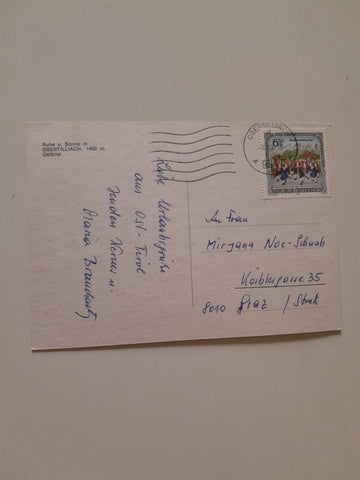 Ruhe u. Sonne in
OBERTILLIACH, 1450 m.
Osttirol
Liebe Urlaubsgrüße
aus Ost-Tirol
senden
Maria
OBERTILLIACH
REPUBLIK ÖSTERREICH
An Frau
Mirjana Noe-Schwab
Körblergasse 35
8010 Graz / Stmk